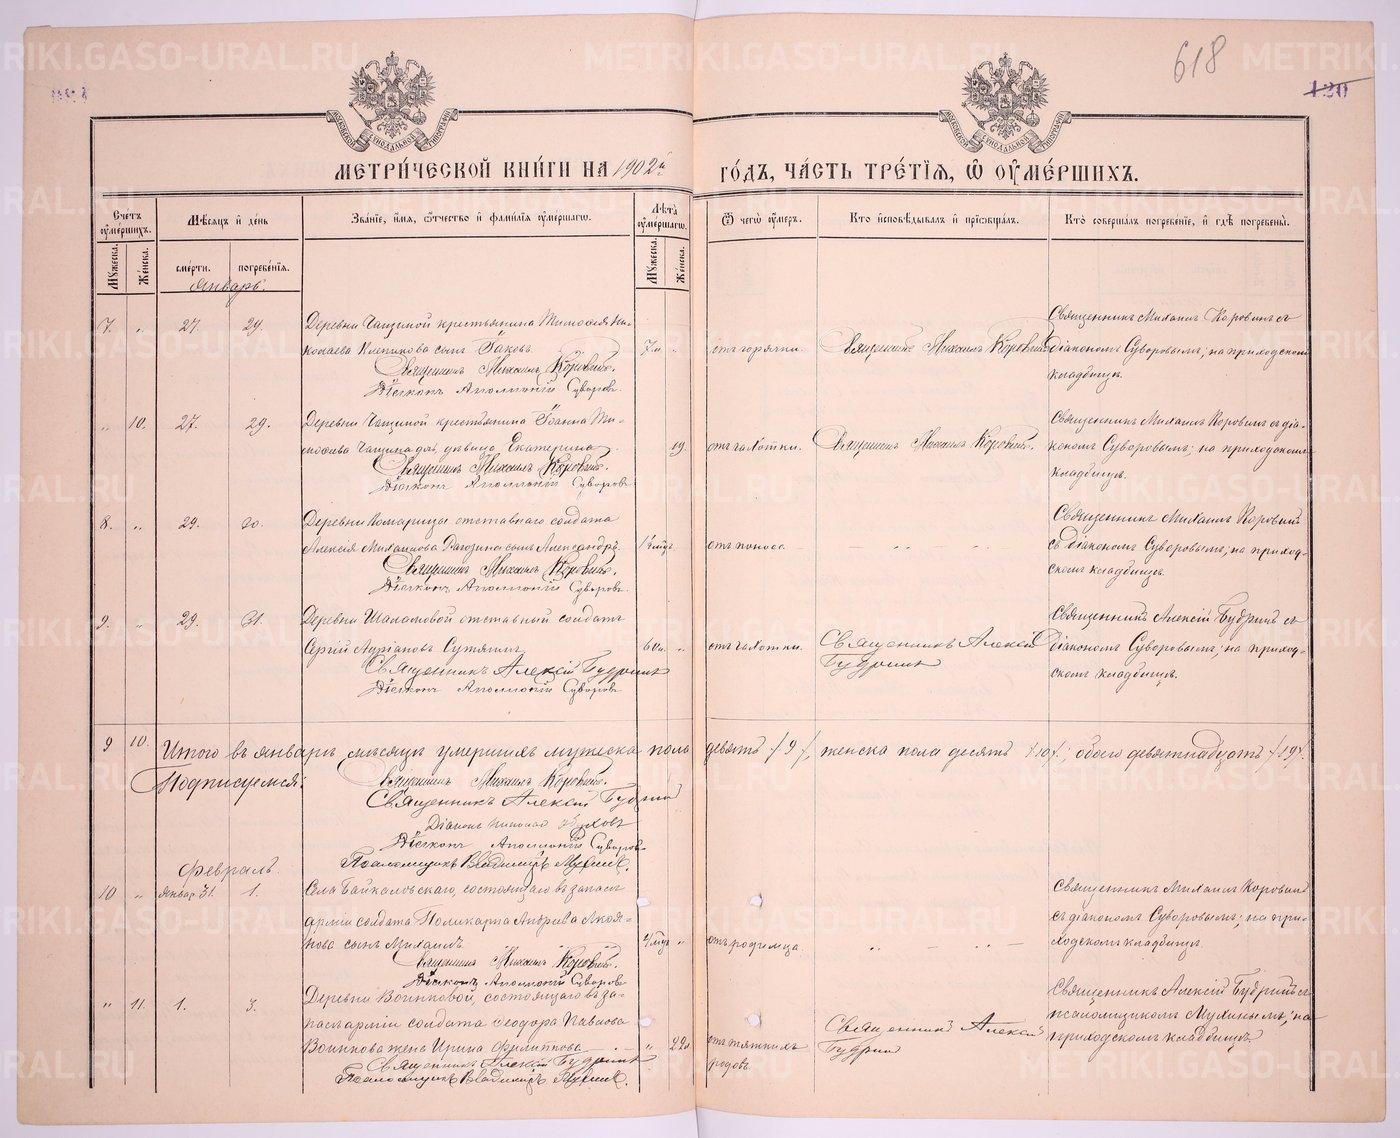 618
120
МЕТРИ́ЧЕСКОЙ КНИ́ГИ НА 1902й ГО́ДЪ, ЧА́СТЬ ТРЕ́ТІЯ, Ѡ ОУМЕ́РШИХЪ.
Счетъ оумершихъ.
Мужеска.
Женска.
Мѣсяцъ и день
смерти.
погребенія.
Званіе, имя, отчество и фамилія оумершагѡ.
Лѣта оумершагѡ.
Мужеска.
Женска.
Ѿ чегѡ оумеръ.
Кто исповѣдывалъ и пріобщалъ.
Кто совершалъ погребеніе, и гдѣ погребены.
Январь.
7. " 27. 29.
Деревни Чащиной крестьянина Тимофея Ни-
колаева Клепикова сынъ Іаковъ.
Священникъ Михаилъ Коровинъ.
Діаконъ Аполлоній Суворовъ.
7 м. "
отъ горячки.
Священникъ Михаилъ Коровинъ
Священникъ Михаилъ Коровинъ съ
діакономъ Суворовымъ; на приходскомъ
кладбищѣ.
" 10. 27. 29.
Деревни Чащиной крестьянина Іоанна Ти-
мофеева Чащина дочь девица Екатерина
Священникъ Михаилъ Коровинъ.
Діаконъ Аполлоній Суворовъ
19.
отъ чахотки.
Священникъ Михаилъ Коровинъ.
Священникъ Михаилъ Коровинъ съ діа-
кономъ Суворовымъ; на приходскомъ
кладбищѣ.
8. " 29. 30.
Деревни Комарицы отставнаго солдата
Алексія Михайлова Рагозина сынъ Александръ.
Священникъ Михаилъ Коровинъ.
Діаконъ Аполлоній Суворовъ.
отъ поноса
" "
Священникъ Михаилъ Коровинъ
съ діакономъ Суворовымъ; на приход-
скомъ кладбищѣ.
9. " 29. 31.
Деревни Шаламовой отставный солдатъ
Сергій Адріановъ
Священникъ Алексій Будринъ
Діаконъ Аполлоній Суворовъ
60 л. "
отъ чахотки.
Священникъ Алексій
Будринъ
Священникъ Алексій Будринъ съ
діакономъ Суворовымъ; на приход-
скомъ кладбищѣ.
9 10.
Итого въ январѣ мѣсяцѣ умершихъ мужеска пола девять /9/, женска пола десять /10/; обоего девятнадцать /19/.
Подписуемся:
Священникъ Михаилъ Коровинъ.
Священникъ Алексій Будрин
Діаконъ Николай
Діаконъ Аполлоній Суворовъ
Псаломщикъ Владиміръ Мухинъ.
Февраль.
10 " Январ. 31. 1.
Села Байкаловскаго, состоящаго въ запасѣ
арміи солдата Поликарпа Андреева
сынъ Михаилъ
Священникъ Михаилъ Коровинъ.
Діаконъ Аполлоній Суворовъ
4 мѣс. "
отъ родимца.
" "
Священникъ Михаилъ Коровинъ
съ діакономъ Суворовымъ; на при-
ходскомъ кладбищѣ.
" 11. 1. 3.
Деревни Воинковой, состоящаго въ за-
пасѣ арміи солдата Ѳеодора Павлова
Воинкова жена Ирина Филиппова
Священникъ Алексій Будринъ
Псаломщикъ Владиміръ Мухинъ.
" 22 л.
отъ тяжкихъ
родовъ.
Священникъ Алексій
Будрин
Священникъ Алексій Будринъ съ
псаломщикомъ Мухинымъ; на
приходскомъ кладбищѣ